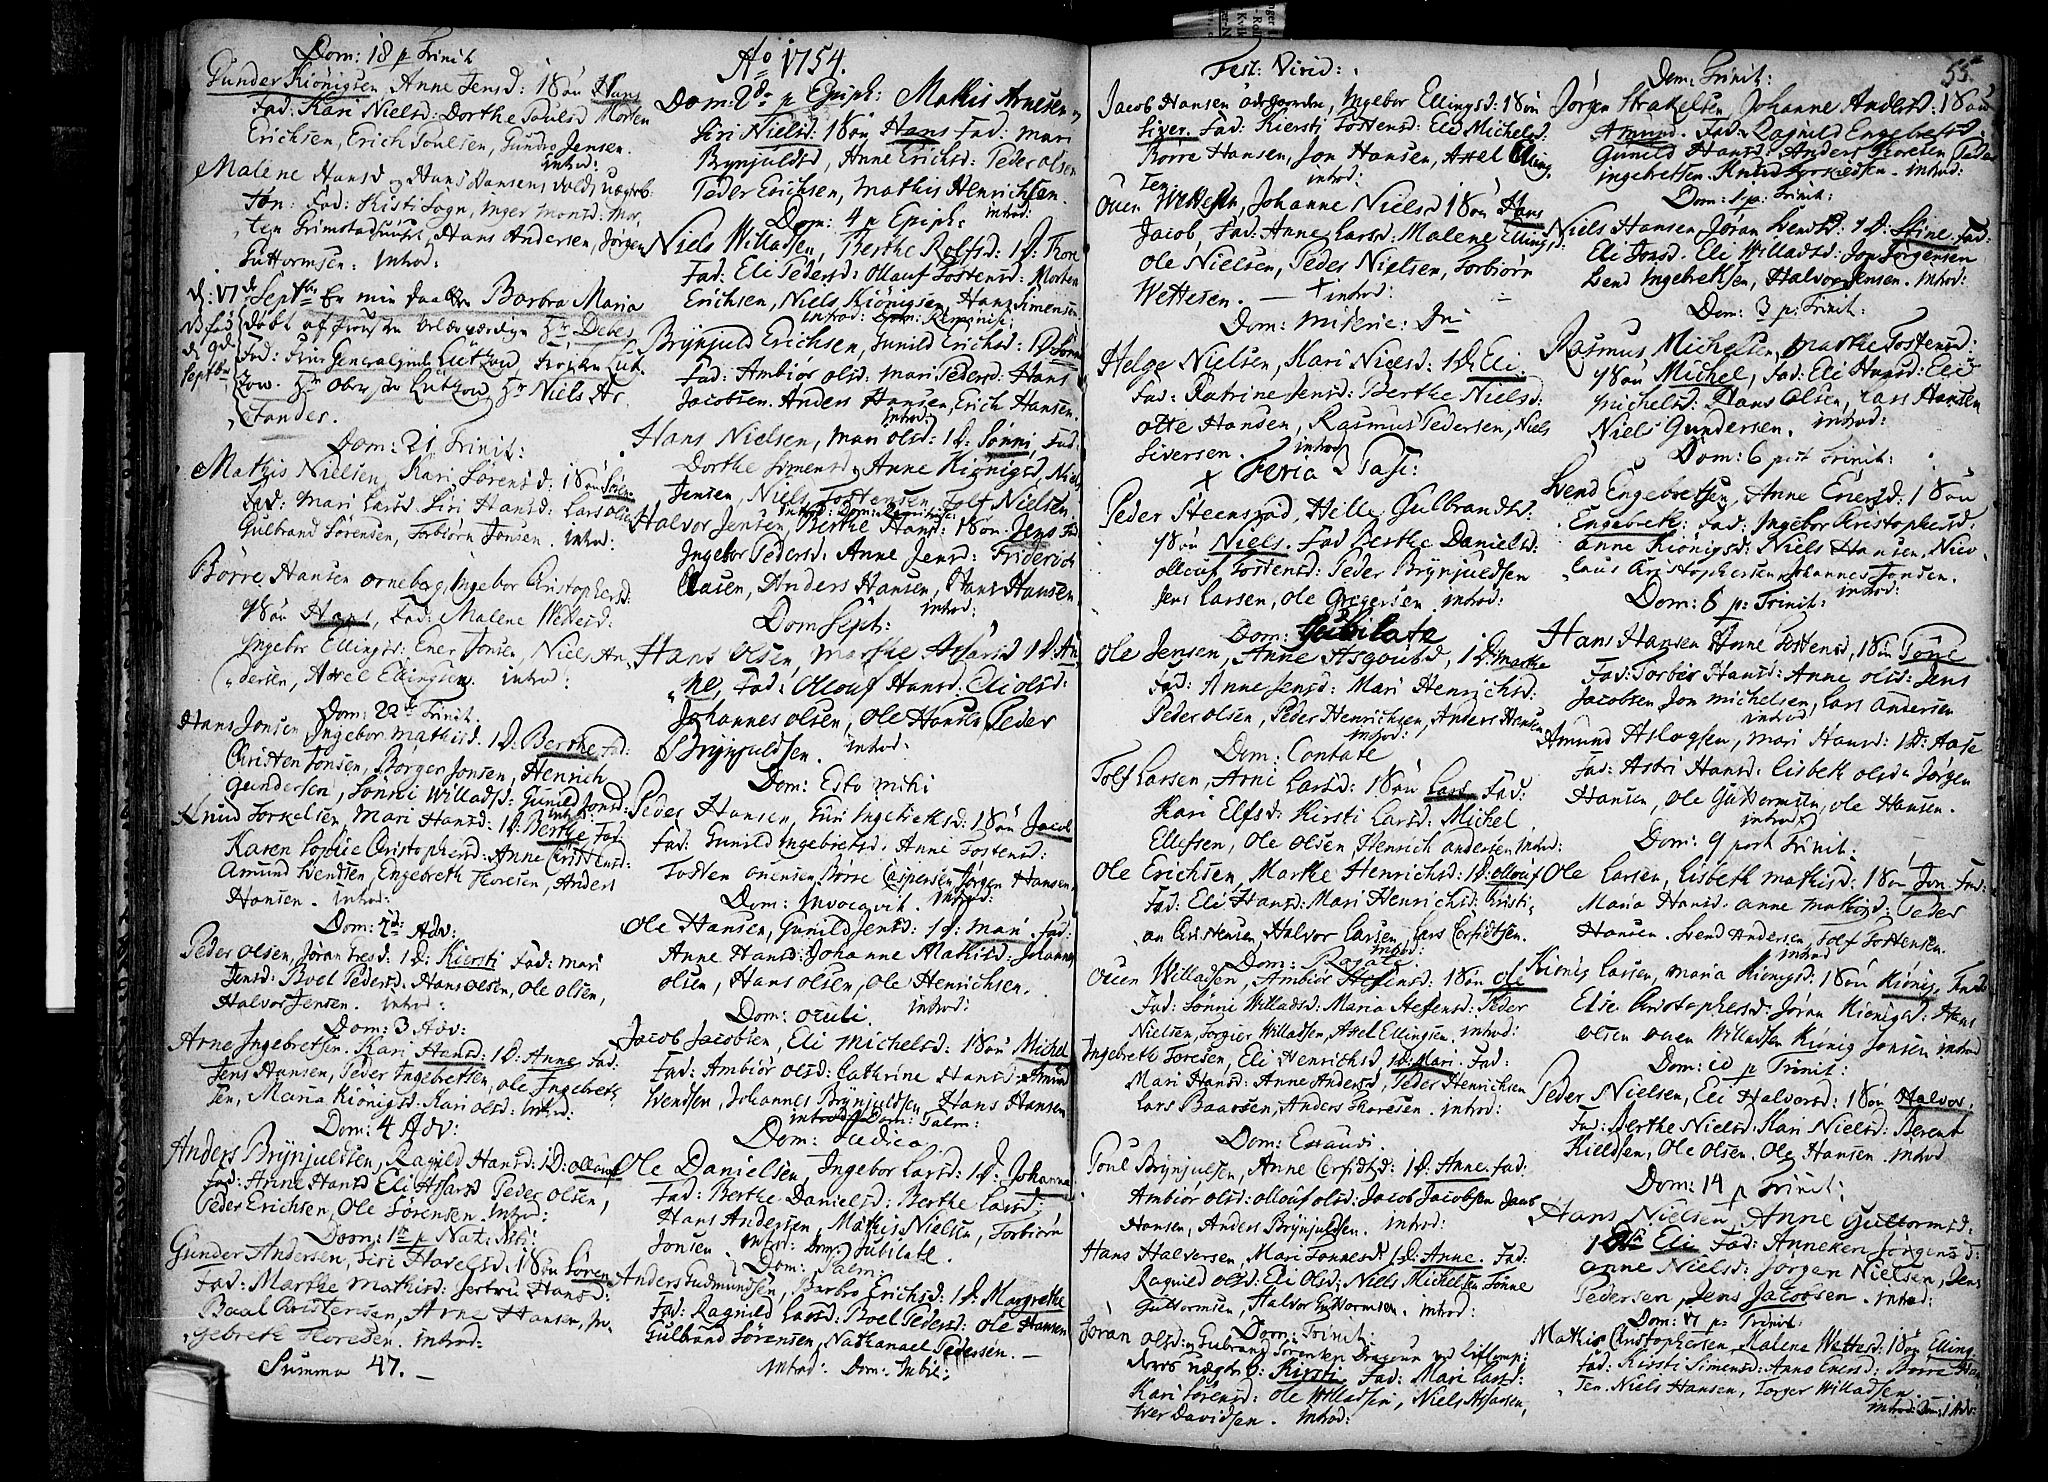 Dom: 18 p Trinit
Gunder Kiönigsen, Anne Jensd: 1 Søn Hans
Fad: Kari Nielsd: Dorthe Poulsd Morten
Erichsen, Erich Poulsen, Gundro Jensen.
introd:
Malene Hansd og Hans Hansens
Søn: Fad: Kisti Sogn, Inger Monsd: Mor,
ten, Hans Andersen, Jørgen
Guttormsen. introd:
d: 17de Septbr Er min Barbra Maria
døbt af Hr Debes
Fad: Generalinde Lützow, Frøken Lüt,
zow. Hr Obrister Lützow, Hr Niels
Dom: 21 Trinit:
Mathis Nielsen, Kari Sørensd: 1 Søn Søren
Fad: Mari Larsd. Siri Hansd: Lars Olsen
Gulbrand Sørensen, Torbiørn Jonsen. introd:
Børre Hansen Orneberg, Ingebor Christophersd:
1 Søn Hans, Fad: Malene Wettesd:
Ingebor Ellingsd: Ener Jonsen, Niels An,
dersen, Axel Ellingsen. introd:
Dom: 22 Trinit.
Hans Jonsen, Ingebor Mathisd. 1 D: Berthe Fad:
Christen Jonsen, Børger Jonsen, Henrich
Gundersen, Sønni Willadsd: Gunild Jonsd:
introd:
Knud Torkelsen, Mari Hansd: 1 D: Berthe Fad:
Karen Sophie Christophersd: Anne Christensd:
Amund Svendsen, Engebreth Thoresen, Anders
Hansen. introd:
Dom: 2d: Adv:
Peder Olsen, Jøran Ivesd: 1 D: Kiersti Fad: Mari
Jensd: Boel Pedersd. Hans Olsen, Ole Olsen,
Halvor Jensen. introd:
Dom: 3 Adv:
Arne Ingebretsen. Kari Hansd: 1 D: Anne Fad:
Jens Hansen, Peder Ingebretsen, Ole Ingebret,
sen, Maria Kiönigsd: Kari Olsd: introd:
Dom: 4 Adv:
Anders Brynjuldsen, Ragnild Hansd: 1 D: Ollouf
Fad: Anne Hansd Eli Assarsd Peder Olsen,
Peder Erichsen, Ole Sørensen. introd:
Dom: 1te p Nat: Xsti:
Gunder Andersen, Siri Havelsd: 1 Søn Søren
Fad: Marthe Mathisd: Jertru Hansd:
Baal Christensen, Arne Hansen, In,
gebreth Thoresen. introd:
Summa 47.
Ao 1754.
Dom: 2do p Epiph: Mathis Arnesen,
Siri Nielsd: 1 Søn Hans Fad: Mari
Brynjuldsd, Anne Erichsd: Peder Olsen
Peder Erichsen, Mathis Henrichsen.
introd:
Dom: 4 p Epiph:
Niels Willadsen, Berthe Rolfsd: 1 D: Thore
Fad: Eli Pedersd: Ollouf Tostensd: Morten
Erichsen, Niels Kiönigsen, Hans Simensen
introd: Dom: Reminisc:
Brynjuld Erichsen, Gunild Erichsd: 1 D Søren
Fad: Ambior Olsd: Mari Pedersd: Hans
Jacobsen. Anders Hansen, Erich Hansen.
introd:
Hans Nielsen, Mari Olsd: 1 D: Sønni, Fad:
Dorthe Simensd, Anne Kiönigsd, Niels
Jensen, Niels Tostensen, Tolf Nielsen.
introd: Dom: Reminisc:
Halvor Jensen, Berthe Hansd: 1 Søn Jens Fad:
Ingebor Pedersd: Anne Jensd: Friderich
Clausen, Anders Hansen, Hans Hansen.
introd:
Dom Sept:
Hans Olsen, Marthe Assarsd 1 D: An,
ne, Fad: Ollouf Hansd: Eli Olsd:
Johannes Olsen, Ole Hansen Peder
Brynjuldsen. introd:
Dom: Esto mihi
Peder Hansen, Guri Ingebretsd: 1 Søn Jacob
Fad: Gunild Ingebretsd. Anne Tostensd:
Tosten Ouensen, Børre Caspersen, Jørgen Hansen.
introd:
Dom: Invocavit.
Ole Hansen, Gunild Jensd: 1 D: Mari. Fad:
Anne Hansd: Johanne Mathisd: Johannes
Olsen, Hans Olsen, Ole Henrichsen.
introd:
Dom: Oculi.
Jacob Jacobsen, Eli Michelsd: 1 Søn Michel
Fad: Ambiør Olsd: Cathrine Hansd: Amund
Svendsen, Johannes Brynjuldsen, Hans Hansen
introd: Dom: Palm:
Dom: Judica
Ole Danielsen, Ingebor Larsd: 1 D: Johanna
Fad: Berthe Danielsd: Berthe Larsd:
Hans Andersen, Mathis Nielsen, Torbiørn
Jonsen. introd: Dom: Jubilate.
Dom: Palm:
Anders Gudmundsen, Barbro Erichsd: 1 D: Margrethe
Fad: Ragnild Larsd: Boel Pedersd: Ole Hansen
Gulbrand Sørensen, Nathanael Pedersen.
introd: Dom: Jubil:
Fest: Virid:
Jacob Hansen Ødegaarden, Ingebor Ellingsd: 1 Søn
Siver. Fad: Kiersti Tostensd: Eli Michelsd:
Børre Hansen, Jon Hansen, Axel Elling,
sen introd:
Ouen Wettesen, Johanne Nielsd 1 Søn Hans
Jacob, Fad: Anne Larsd: Malene Ellingsd:
Ole Nielsen, Peder Nielsen, Torbiørn
Wettesen. introd:
Dom: Miseric: Dni
Helge Nielsen, Kari Nielsd: 1 D: Eli.
Fad: Katrine Jensd: Berthe Nielsd:
Otte Hansen, Rasmus Pedersen, Niels
Siversen. introd
Feria 2 Pasc:
Peder Steensrød, Helle Gulbrandsd:
1 Søn Niels. Fad Berthe Danielsd:
Ollouf Tostensd: Peder Brynjuldsen
Jens Larsen, Ole Gregersen introd:
Dom: Jubilate
Ole Jensen, Anne Asgoutsd, 1 D: Marthe
Fad: Anne Jensd: Mari Henrichsd:
Peder Olsen, Peder Henrichsen, Anders Hansen
introd:
Dom: Cantate
Tolf Larsen, Arne Larsd: 1 Søn Lars Fad:
Kari Elfsd: Kirsti Larsd: Michel
Ellefsen, Ole Olsen, Henrich Andersen introd:
Ole Erichsen, Marthe Henrichsd: 1 D: Ollouf
Fad: Eli Hansd: Mari Henrichsd: Kristi,
an Christensen, Halvor Larsen, Lars Cerfidtsen.
introd:
Dom: Rogate
Ouen Willadsen, Ambiør Steffensd: 1 Søn Ole
Fad: Sønni Willadsd: Maria Steffensd: Peder
Nielsen, Torgier Willadsen, Axel Ellingsen. introd:
Ingebreth Toresen, Eli Henrichsd, 1 D: Mari. Fad:
Mari Hansd: Anne Andersd, Peder Henrichsen
Lars Baarsen, Anders Thoresen. introd:
Dom: Exaudi.
Poul Brynjulsen, Anne Cerfidtsd: 1 D: Anne. Fad:
Ambiør Olsd: Ollouf Olsd: Jacob Jacobsen Jacob
Hansen, Anders Brynjuldsen. introd:
Hans Halversen, Mari Tonnesd 1 D: Anne. Fad:
Ragnild Olsd: Eli Olsd: Niels Michelsen Tønne
Guttormsen, Halvor Guttormsen. introd:
Dom: Trinit:
Jøran Olsd: og Gulbrand Sørensen Dragoun ved
D: Kirsti Fad: Mari Larsd:
Kari Sørensd: Ole Willadsen, Niels Assarsen,
Iver Davidsen. introd:
55.
Dom: Trinit:
Jørgen Strakelsen, Johanne Andersd: 1 Søn
Amund. Fad: Ragnild Engebretsd:
Gunild Hansd: Anders Thoresen Peder
Ingebretsen. Knud Torkildsen. introd:
Dom: 1 p: Trinit:
Niels Hansen Jøran Svendsd: 1 D: Stine. Fad:
Eli Jonsd. Eli Willadsd: Jon Jørgensen
Svend Ingebretsen, Halvor Jensen. introd:
Dom: 3 p: Trinit:
Rasmus Michelsen, Marthe Tostensd:
1 Søn Michel, Fad: Eli Hansd: Eli
Michelsd: Hans Olsen, Lars Hansen
Niels Gundersen. introd:
Dom: 6 post Trinit:
Svend Engebretsen, Anne Enersd: 1 Søn
Engebreth: Fad: Ingebor Christophersd:
Anne Kiönigsd: Niels Hansen, Nico,
laus Christophersen, Johannes Jonsen.
introd:
Dom: 8 p: Trinit:
Hans Hansen Anne Tostensd, 1 Søn Tone
Fad: Torbiør Hansd: Anne Olsd: Jens
Jacobsen Jon Michelsen, Lars Andersen
introd
Amund Aslagsen, Mari Hansd: 1 D: Aase
Fad: Astri Hansd: Lisbeth Olsd: Jørgen
Hansen, Ole Guttormsen, Ole Hansen.
introd:
Dom: 9 post Trinit:
Ole Larsen, Lisbeth Mathisd: 1 Søn Jon, Fad:
Maria Hansd. Anne Mathisd: Peder
Hansen. Svend Andersen, Tolf Tostensen.
introd
Kiönig Larsen, Maria Kiönigsd: 1 Søn Kiönig, Fad:
Else Christophersd: Jøran Kiönigsd: Hans
Olsen Ouen Willadsen Kiönig Jonsen introd
Dom: 10 p Trinit:
Peder Nielsen, Eli Halvorsd: 1 Søn Halvor,
Fad: Berthe Nielsd: Kari Nielsd: Berent
Kieldsen, Ole Olsen, Ole Hansen. introd
Dom: 14 p Trinit:
Hans Nielsen, Anne Guttormsd:
1 D: Eli Fad: Anneken Jørgensd:
Anne Nielsd: Jørgen Nielsen, Jens
Pedersen, Jens Jacobsen. introd
Dom: 17 p: Trinit:
Mathis Christophersen, Malene Wettesd: 1 Søn Elling.
Fad: Kirsti Simensd: Anne Enersd: Børre Han,
sen. Niels Hansen, Torger Willadsen.
introd: Dom: 1 Adv: